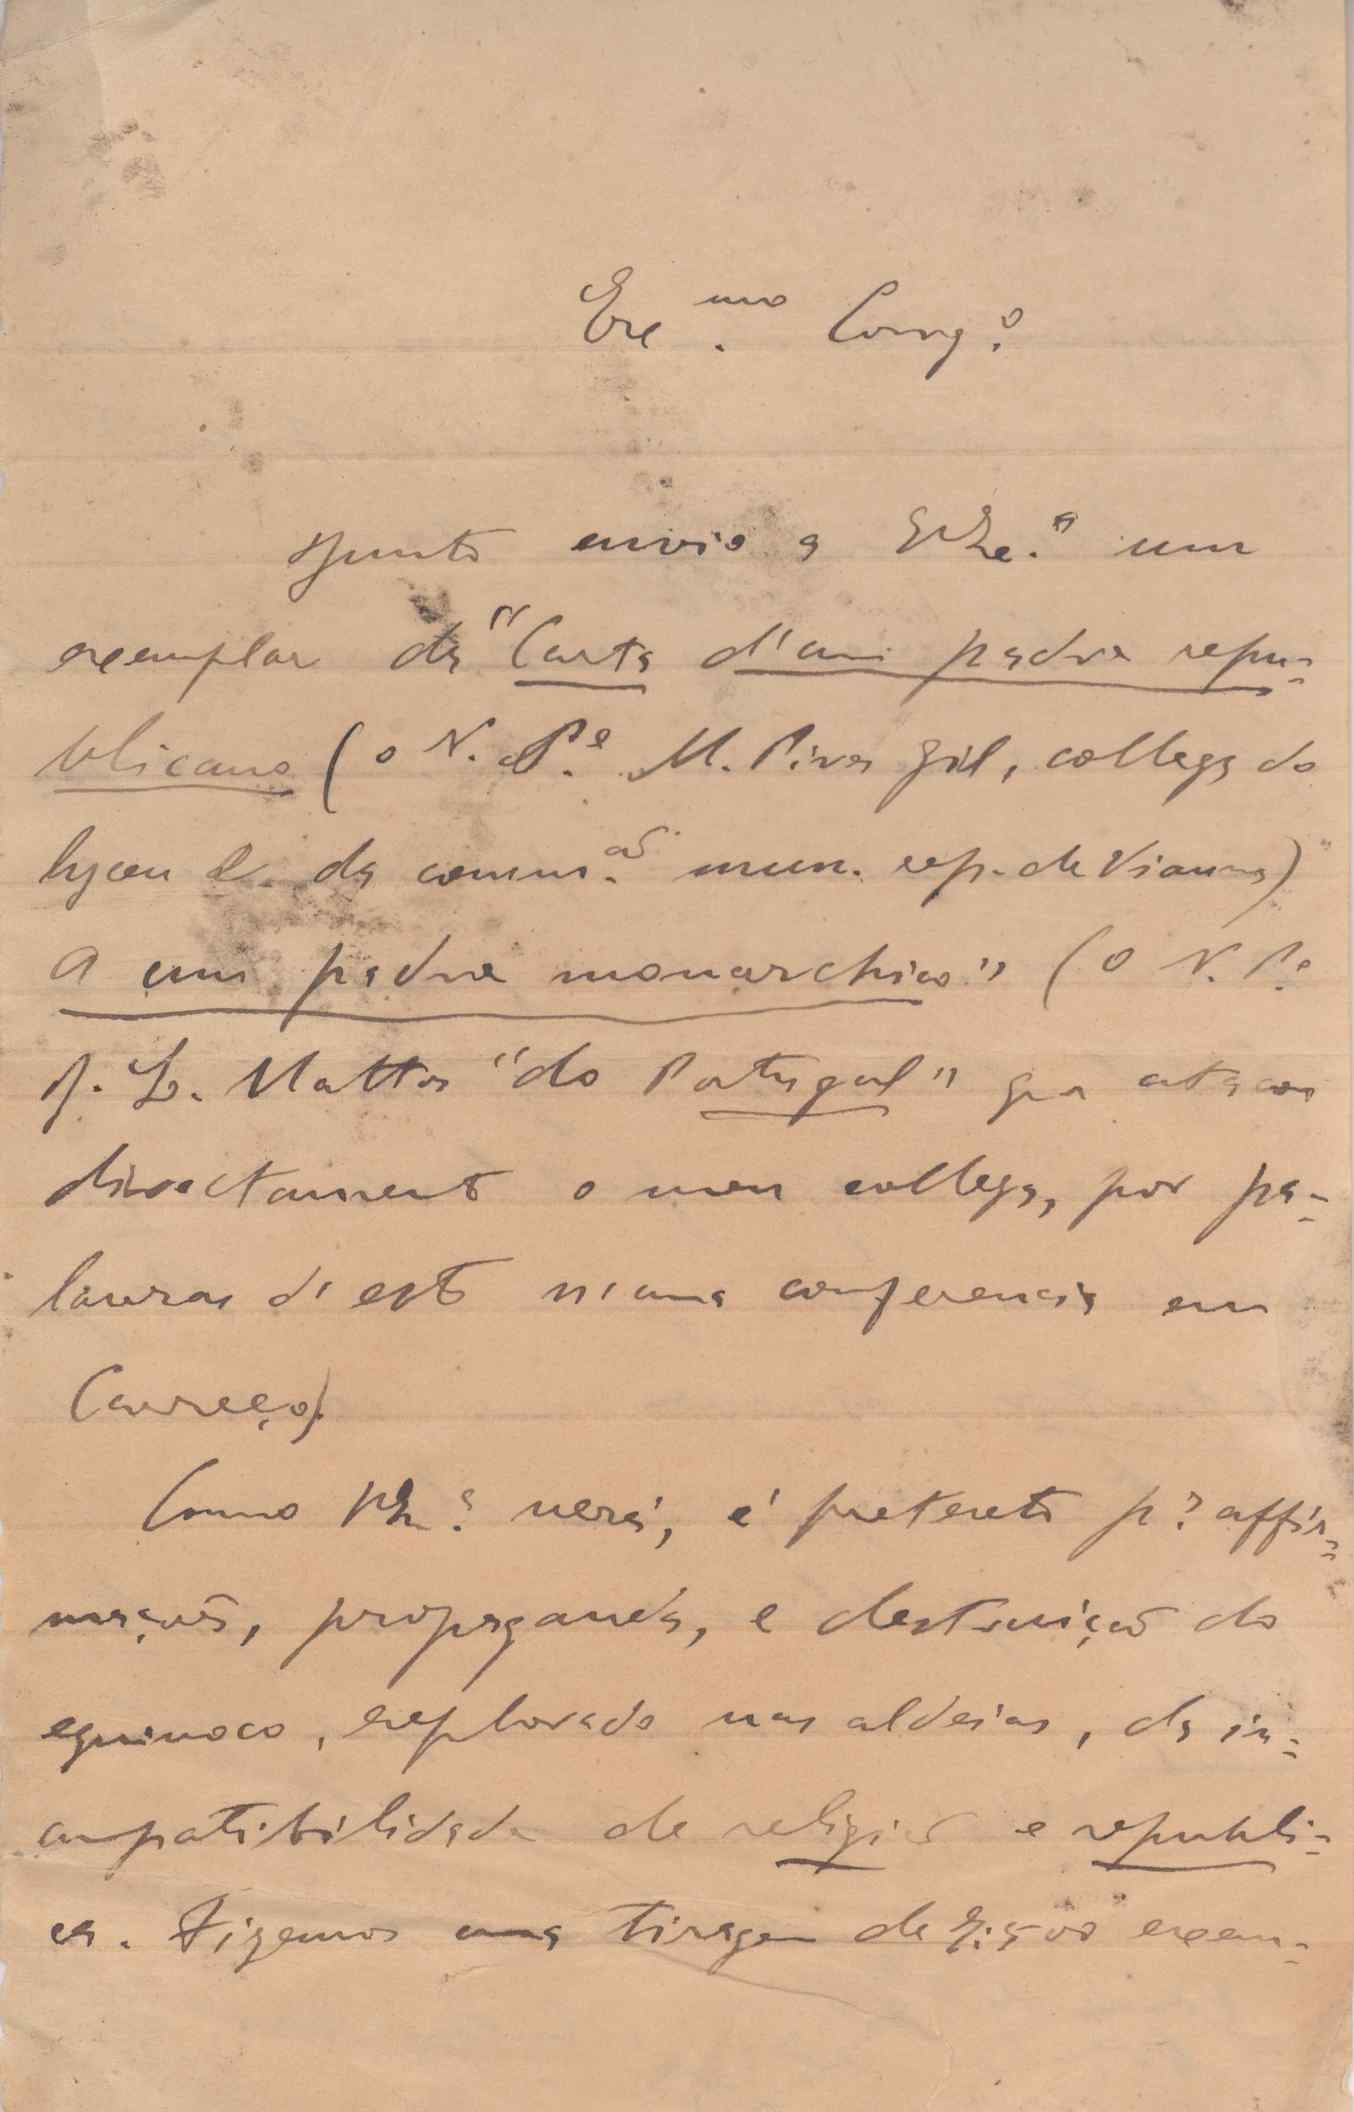 Exc.mo Corrg.o
Junto envio a V. Ex.a um
exemplar da "Carta d'um padre repu-
blicano (o N. P.e M. Pires Gil, collega do
lyceu e da comm.ão mun. rep. de Vianna)
a um padre monarchico" (o N. P.e
J. L. Mattos "do Portugal" que atacou
directamente o meu collega, por pa-
lavras d'este n'uma conferencia em
Carreço).
Como V. Ex.a verá, é pretexto p.a affir-
mações, propaganda, e destruição do
equivoco, explorado nas aldeias, da in-
compatibilidade de religião e republi-
ca. Fizemos uma tiragem de 500 exem-